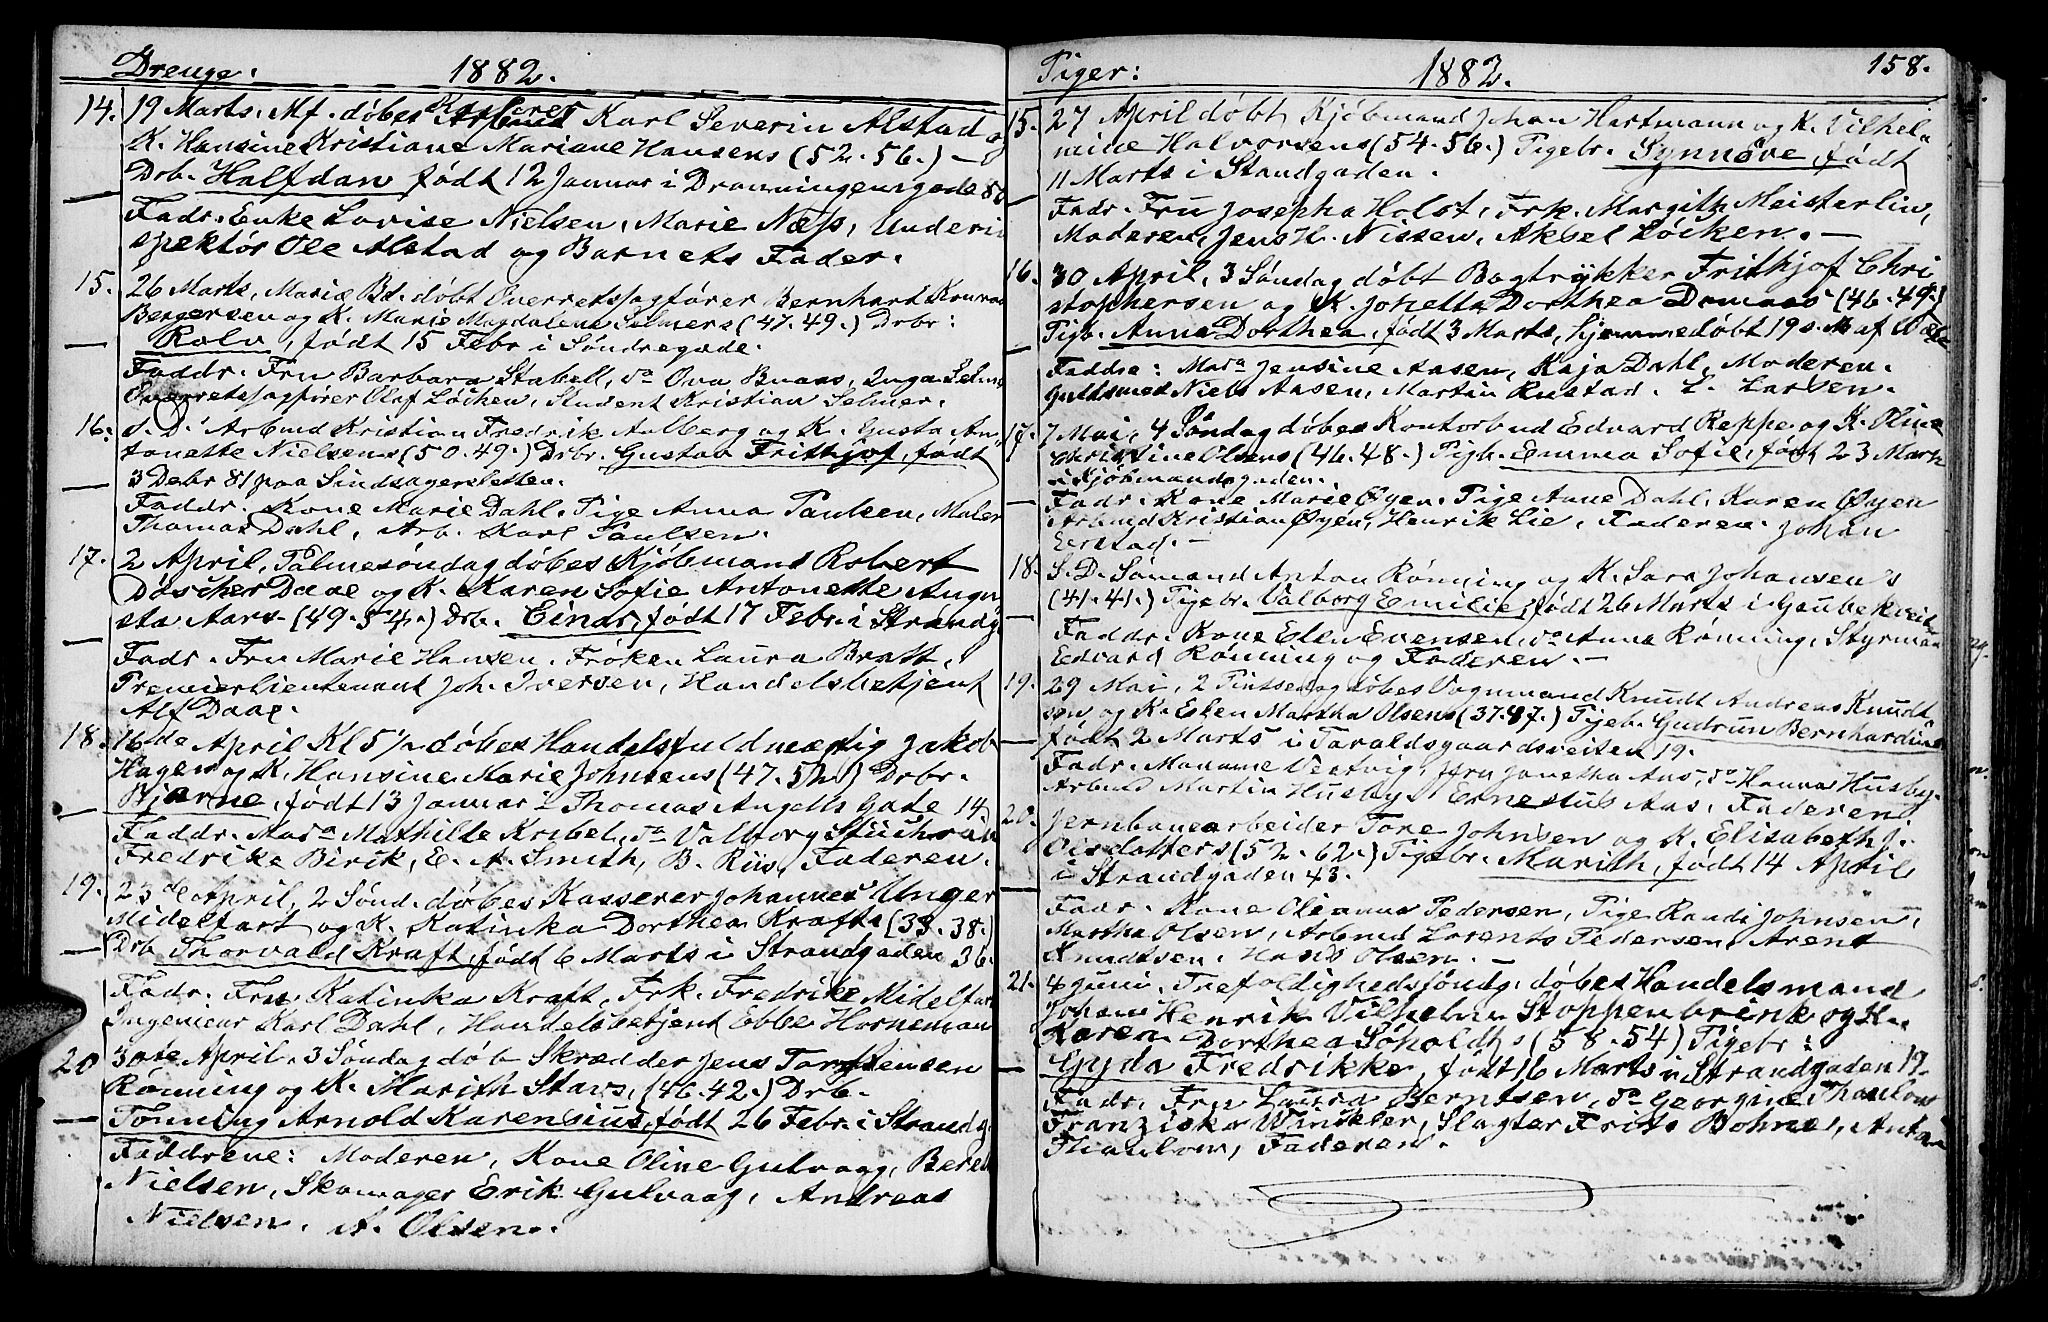 Drenge. 1882.
14. 19 Marts. Mf. døbes Kasserer Karl Severin Alstad og
K. Hansine Kristiane Mariane Hansens (52.56.) —
Drb. Halfdan født 12 Januar i Dronningensgade 8
Fadr. Enke Lovise Nielsen, Marie Næss, Underin
spektør Ole Alstad og Barnets Fader.
15. 26 Marts, Mariæ Bd. døbt Overretssagfører Bernhart Konrad
Bergersen og K. Marie Magdalene Selmers (47.49.) Drbr:
Rolv, født 15 Febr i Søndregade.
Faddr. Fru Barbara Stabell, do Ova Buaas, Inga Selm
Overretssagfører Olaf Løchen, Student Kristian Selmer.
16. s. D. Arbmd Kristian Fredrik Aalberg og K. Gusta An
tonette Nielsens (50.49.) Drbr. Gustav Frithjof, født
3 Debr 81 paa Sindsagersletten.
Faddr. Kone Marie Dahl. Pige Anna Paulsen, Maler
Thomas Dahl, Arb. Karl Paulsen.
17. 2 April, Palmesøndag døbes Kjøbmand Robert
Døscher Daae og K. Karen Sofie Antonette Augu
sta Aars (49.54.) Drb. Einar, født 17 Febr. i Strandg
Fadr. Fru Marie Hansen. Frøken Laura Bratt,
Premierlieutenant Joh. Iversen, Handelsbetjent
Alf Daae.
18. 16de April Kl 5½ døbes Handelsfuldmægtig Jakob
Hagen og K. Hansine Marie Johnsens (47.52.) Drbr.
Bjarne, født 13 Januar i Thomas Angells Gate 14.
Faddr. Mada Mathilde Krebel, do Valborg
Fredrike Birik, E. A. Smith, B. Riis, Faderen.
19. 23de April, 2 Sønd. døbes Kasserer Johannes Unger
Midelfart og K. Katinka Dorthea Krafts (33.38.)
Drb. Thorvald Kraft, født 6 Marts i Strandgaden 36.
Fadr: Fru Katinka Kraft, Frk. Fredrike Midelfar
Ingenieur Karl Dahl, Handelsbetjent Ebbe Horneman
20 30te April. 3 Søndag døb Skrædder Jens Torstensen
Rønning og K. Marith Stavs, (46.42.) Drb.
Tønning Arnold Karensius, født 26 Febr. i Strandg
Faddrene: Moderen, Kone Oline Gulvaag, Beren
Nielsen, Skomager Erik Gulvaag, Andreas
Nielsen. A. Olsen.
Piger: 1882. 158.
15. 27 April døbt Kjøbmand Johan Hartmann og K. Vilhel
mine Halvorsens (54.56.) Pigebr. Synnöve, født
11 Marts i Standgaden.
Fadr. Fru Josepha Holst, Frk. Margith Meisterlin,
Moderen, Jens H. Nissen, Aksel Løcken. —
16. 30 April, 3 Søndag døbt Bogtrykker Frithjof Chri
stophersen og K. Johetta Dorthea Domaas (46.49.)
Pigb. Anna Dorthea, født 3 Marts, hjemmedøbt 19 s. M af
Faddre: Mada Jensine Aasen, Kaja Dahl, Moderen.
Guldsmed Niels Aasen, Martin Rustad. L. Larsen.
17. 7 Mai, 4 Søndag døbes Kontorbud Edvard Reppe og K. Oline
Christine Olsens (46.48.) Pigb. Emma Sofie, født 23 Marts
i Kjøbmandsgaden.
Fadr. Kone Marie Øyen. Pige Anne Dahl. Karen Øyen
Arbmd Kristian Øyen, Henrik Lie, Faderen. Johan
Eerstad. —
18. S. D. Sømand Anton Rønning og K. Sara Johansen's
(41.41.) Pigebr. Valborg Emilie, født 26 Marts i Gaubekveit
Faddr. Kone Elen Evensen, do Anna Rønning, Styrman
Edvard Rønning og Faderen. —
19. 29 Mai, 2 Pintsedag døbes Vognmand Knudt Andreas Knudt
sen og K. Elen Martha Olsens (37.47.) Pigeb. Gudrun Bernhardine
født 2 Marts i Taraldsgaardsveiten 19.
Fadr. Madame Vestvig, Jfru Janetha Aas, do Hanna Husby,
Arbmd Martin Husby. Ernestus Aas, Faderen.
20. Jernbanearbeider Tore Johnsen og K. Elisabeth J.
Olsdatters (52.62.) Pigebr. Marith, født 14 April
i Strandgaden 43.
Fadr. Kone Olianna Pedersen, Pige Randi Johnsen,
Martha Olsen, Arbmd Lorents Pedersen, Arent
Knudtsen, Hans Olsen. —
21. 4 Juni, Trefoldighedssøndg. døbes Handelsmand
Johan Henrik Vilhelm Stoppenbrink og K.
Karen Dorthea Søholdts (58.54) Pigebr:
Gyda Fredrikke, født 16 Marts i Strandgaden 19.
Fadr. Fru Laura Berntsen, do Georgine Thaulow
Franziska Winkler, Slagter Frits Bohne, Anton
Thaulow, Faderen.